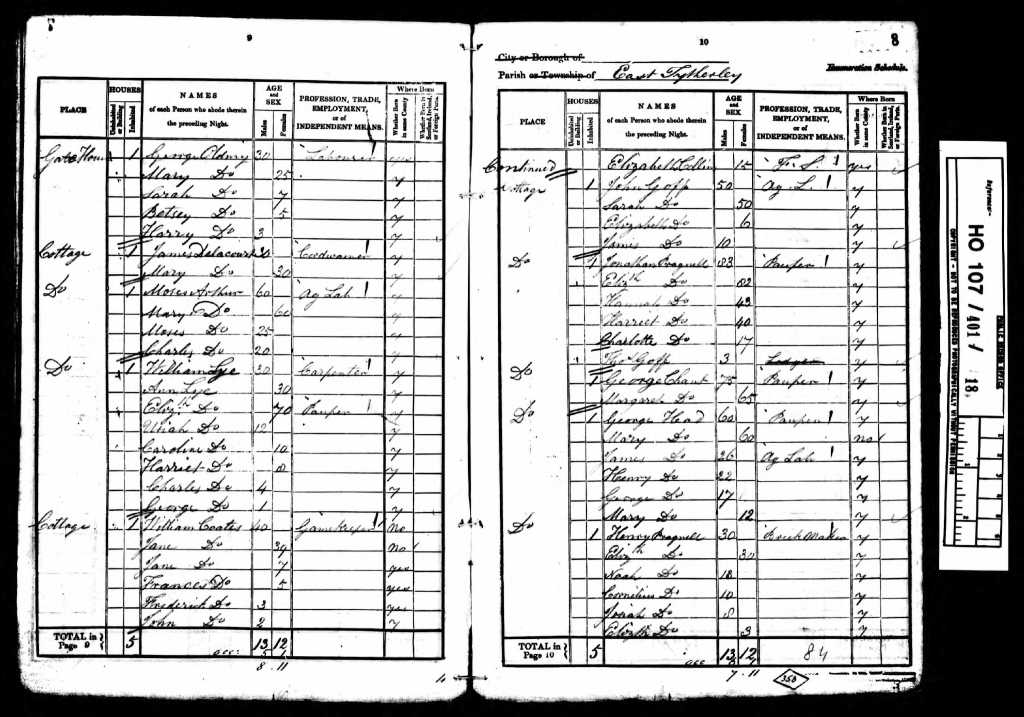 9
PLACE HOUSES Uninhabited or Building Inhabited NAMES of each Person who abode therein the preceding Night. AGE and SEX Males Females PROFESSION, TRADE, EMPLOYMENT, or of INDEPENDENT MEANS. Where Born Whether Born in same County Whether Born in Scotland, Ireland, or Foreign Parts.
1 George 30 Labourer yes
Mary Do 25 y
Sarah Do 7 y
Betsey Do 5 y
Harry Do 3 y
Cottage 1 James Delacourt 30 Cordwainer y
Mary Do 30 y
Do 1 Moses Arthur 60 Ag Lab y
Mary Do 60 y
Moses Do 25 y
Charles Do 20 y
Do 1 William Lye 30 Carpenter y
Ann Lye 30 y
Elizth Do 70 Pauper y
Uriah Do 12 y
Caroline Do 10 y
Harriet Do 8 y
Charles Do 4 y
George Do 1 y
Cottage 1 William Coates 40 Game Keeper no
Jane Do 39 no
Jane Do 7 yes
Frances Do 5 yes
Frederick Do 3 yes
John Do 2 y
TOTAL in Page 9 5 13 12
8 11
10
8
City or Borough of
Parish or Township of East Tytherley
Enumeration Schedule.
PLACE HOUSES Uninhabited or Building Inhabited NAMES of each Person who abode therein the preceding Night. AGE and SEX Males Females PROFESSION, TRADE, EMPLOYMENT, or of INDEPENDENT MEANS. Where Born Whether Born in same County Whether Born in Scotland, Ireland, or Foreign Parts.
Continued Elizabeth 15 F. S. yes
Cottage 1 John Goff 50 Ag. L. y
Sarah Do 50 y
Elizabeth Do 6 y
James Do 10 y
Do 1 Jonathan Pragnell 83 Pauper y
Elizth Do 82 y
Hannah Do 43 y
Harriet Do 40 y
Charlotte Do 17 y
Thos Goff 3 Lodger y
Do 1 George Chant 75 Pauper y
Margaret Do 65 y
Do 1 George Head 60 Pauper y
Mary Do 60 no
James Do 26 Ag Lab y
Henry Do 22 y
George Do 17 y
Mary Do 12 y
Do 1 Henry Pragnell 30 Brick Maker y
Elizth Do 30 y
Noah Do 18 y
Cornelius Do 10 y
Josiah Do 8 y
Elizth Do 3 y
TOTAL in Page 10 5 13 12 84
7 11
358
Reference:-
HO 107/401/18
PUBLIC RECORD OFFICE
COPYRIGHT - NOT TO BE REPRODUCED PHOTOGRAPHICALLY WITHOUT PERMISSION